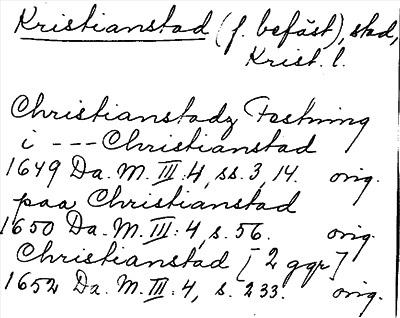 Kristianstad (f. befäst), stad,
Krist. l.
Christianstadz Festning
i --- Christianstad
1649 Da. M. III:4, ss. 3, 14. orig.
paa Christianstad
1650 Da. M. III:4, s. 56. orig.
Christianstad [2 ggr]
1652 Da. M. III:4, s. 233. orig.